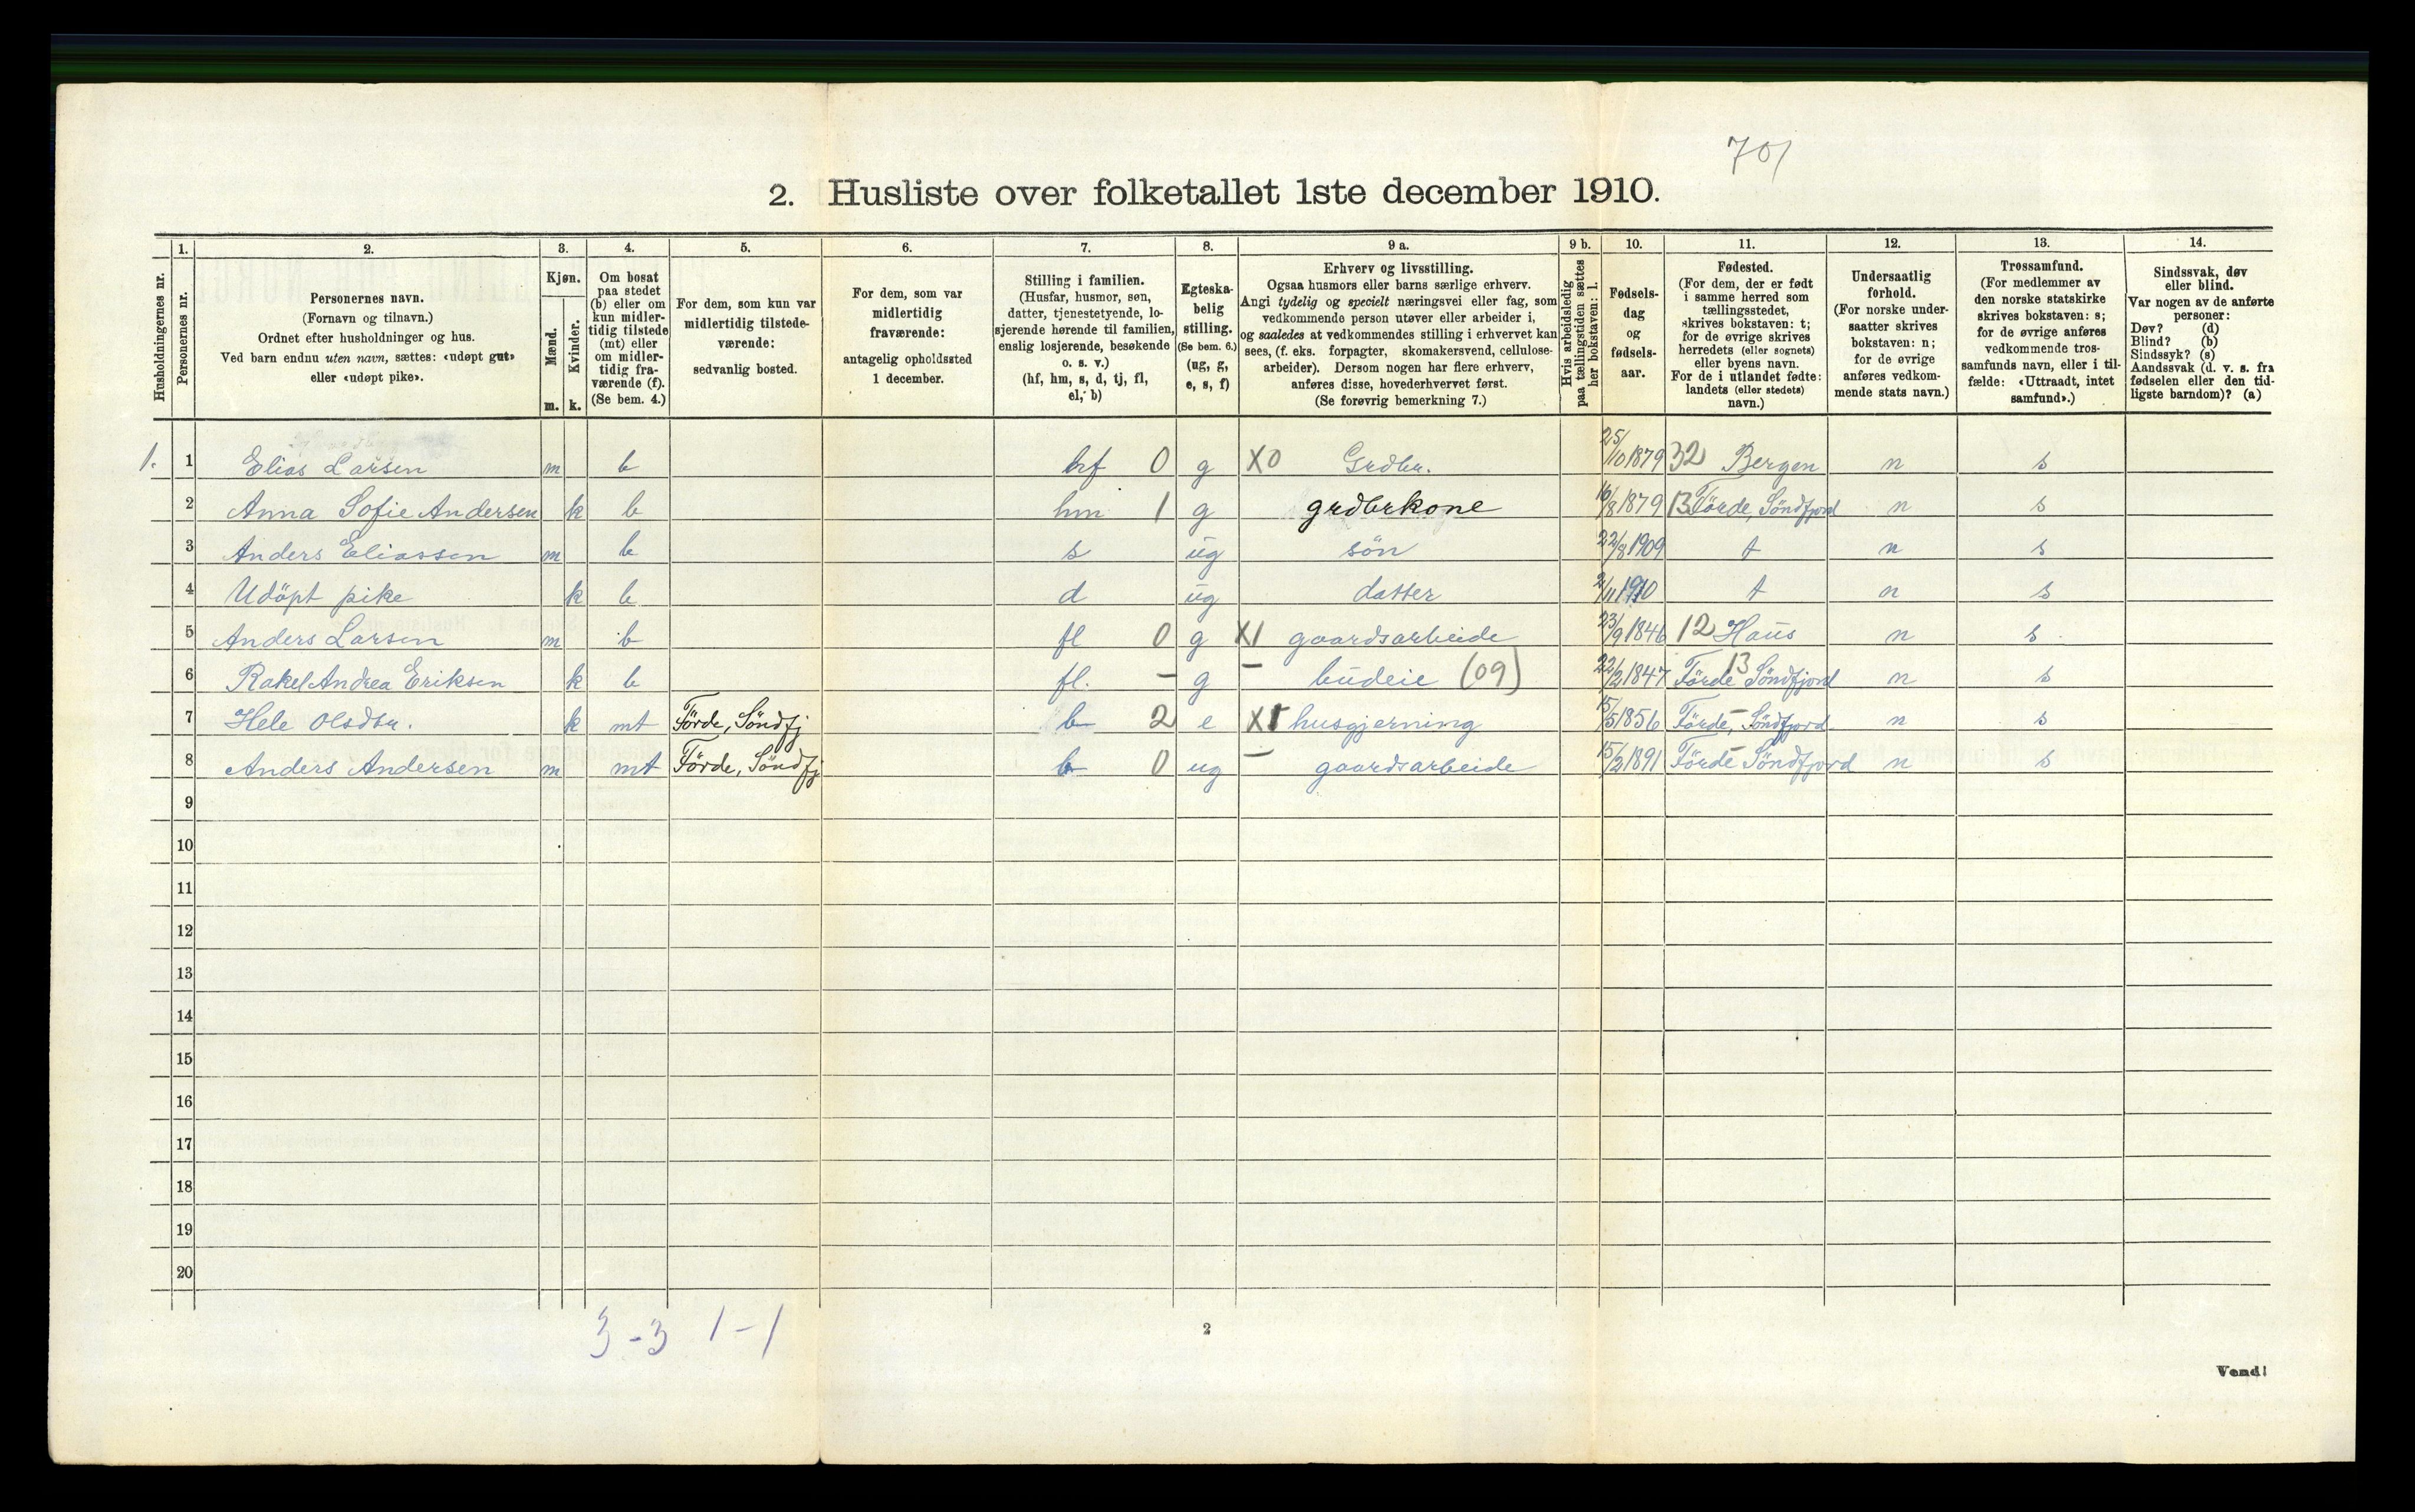 701
2. Husliste over folketallet 1ste december 1910.
Husholdningernes nr.
1. Personernes nr.
2. Personernes navn.
(Fornavn og tilnavn.)
Ordnet efter husholdninger og hus.
Ved barn endnu uten navn, sættes: «udøpt gut»
eller «udøpt pike».
3. Kjøn.
Mænd. m.
Kvinder. k.
4. Om bosat
paa stedet
(b) eller om
kun midler-
tidig tilstede
(mt) eller
om midler-
tidig fra-
værende (f).
(Se bem. 4.)
5. For dem, som kun var
midlertidig tilstede-
værende:
sedvanlig bosted.
6. For dem, som var
midlertidig
fraværende:
antagelig opholdssted
1 december.
7. Stilling i familien.
(Husfar, husmor, søn,
datter, tjenestetyende, lo-
sjerende hørende til familien,
enslig losjerende, besøkende
o. s. v.)
(hf, hm, s, d, tj, fl,
el, b)
8. Egteska-
belig
stilling.
(Se bem. 6.)
(ug, g,
e, s, f)
9 a. Erhverv og livsstilling.
Ogsaa husmors eller barns særlige erhverv.
Angi tydelig og specielt næringsvei eller fag, som
vedkommende person utøver eller arbeider i,
og saaledes at vedkommendes stilling i erhvervet kan
sees, (f. eks. forpagter, skomakersvend, cellulose-
arbeider). Dersom nogen har flere erhverv,
anføres disse, hovederhvervet først.
(Se forøvrig bemerkning 7.)
9 b. Hvis arbeidsledig
paa tællingstiden sættes
her bokstaven: l.
10. Fødsels-
dag
og
fødsels-
aar.
11. Fødested.
(For dem, der er født
i samme herred som
tællingsstedet,
skrives bokstaven: t;
for de øvrige skrives
herredets (eller sognets)
eller byens navn.
For de i utlandet fødte:
landets (eller stedets)
navn.)
12. Undersaatlig
forhold.
(For norske under-
saatter skrives
bokstaven: n;
for de øvrige
anføres vedkom-
mende stats navn.)
13. Trossamfund.
(For medlemmer av
den norske statskirke
skrives bokstaven: s;
for de øvrige anføres
vedkommende tros-
samfunds navn, eller i til-
fælde: «Uttraadt, intet
samfund».)
14. Sindssvak, døv
eller blind.
Var nogen av de anførte
personer:
Døv? (d)
Blind? (b)
Sindssyk? (s)
Aandssvak (d. v. s. fra
fødselen eller den tid-
ligste barndom)? (a)
1. 1 Elias Larsen m b hf 0 g X0 Grdbr. 25/10 1879 32 Bergen n s
2 Anna Sofie Andersen k b hm 1 g grdbrkone 16/8 1879 13 Förde, Söndfjord n s
3 Anders Eliassen m b s ug sön 22/8 1909 t n s
4 Udöpt pike k b d ug datter 2/11 1910 t n s
5 Anders Larsen m b fl 0 g X1 gaardsarbeide 23/9 1846 12 Haus n s
6 Rakel Andrea Eriksen k b fl. - g - budeie (09) 22/2 1847 Förde 13 Söndfjord n s
7 Hele Olsdtr. k mt Förde, Söndfj b 2 e X1 husgjerning 15/5 1856 Förde, - Söndfjord n s
8 Anders Andersen m mt Förde, Söndfj b 0 ug - gaardsarbeide 15/2 1891 Förde - Söndfjord n s
9
10
11
12
13
14
15
16
17
18
19
20
3 - 3 1 - 1
2
Vend!